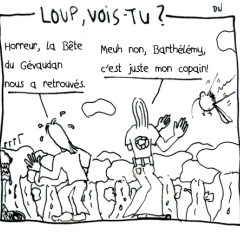 LOUP, VOIS-TU ?
DU
Horreur, la Bête
du Gévaudan
nous a retrouvés.
Meuh non, Barthélémy,
c'est juste mon copain!